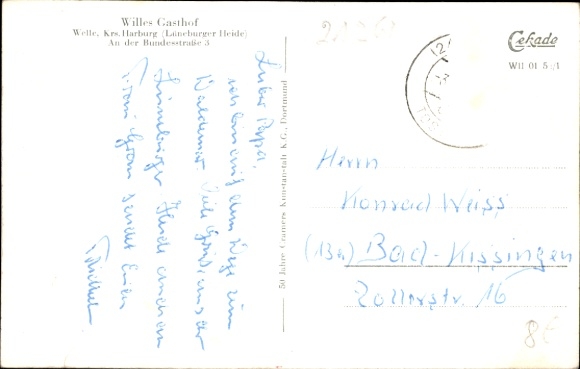 Willes Gasthof
Welle, Krs. Harburg (Lüneburger Heide)
An der Bundesstraße 3
Lieber Papa,
ich bin auf dem Wege zum
Viele Grüße aus der
Lüneburger Heide
sendet Euch
50 Jahre Cramers Kunstanstalt K.G., Dortmund
Cekade
WII 01 5 /1
Herrn
Konrad Weiss
(13a) Bad-Kissingen
Zollerstr. 16
8€